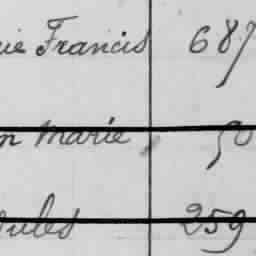 Francis 687
Marie, 90
Jules 259